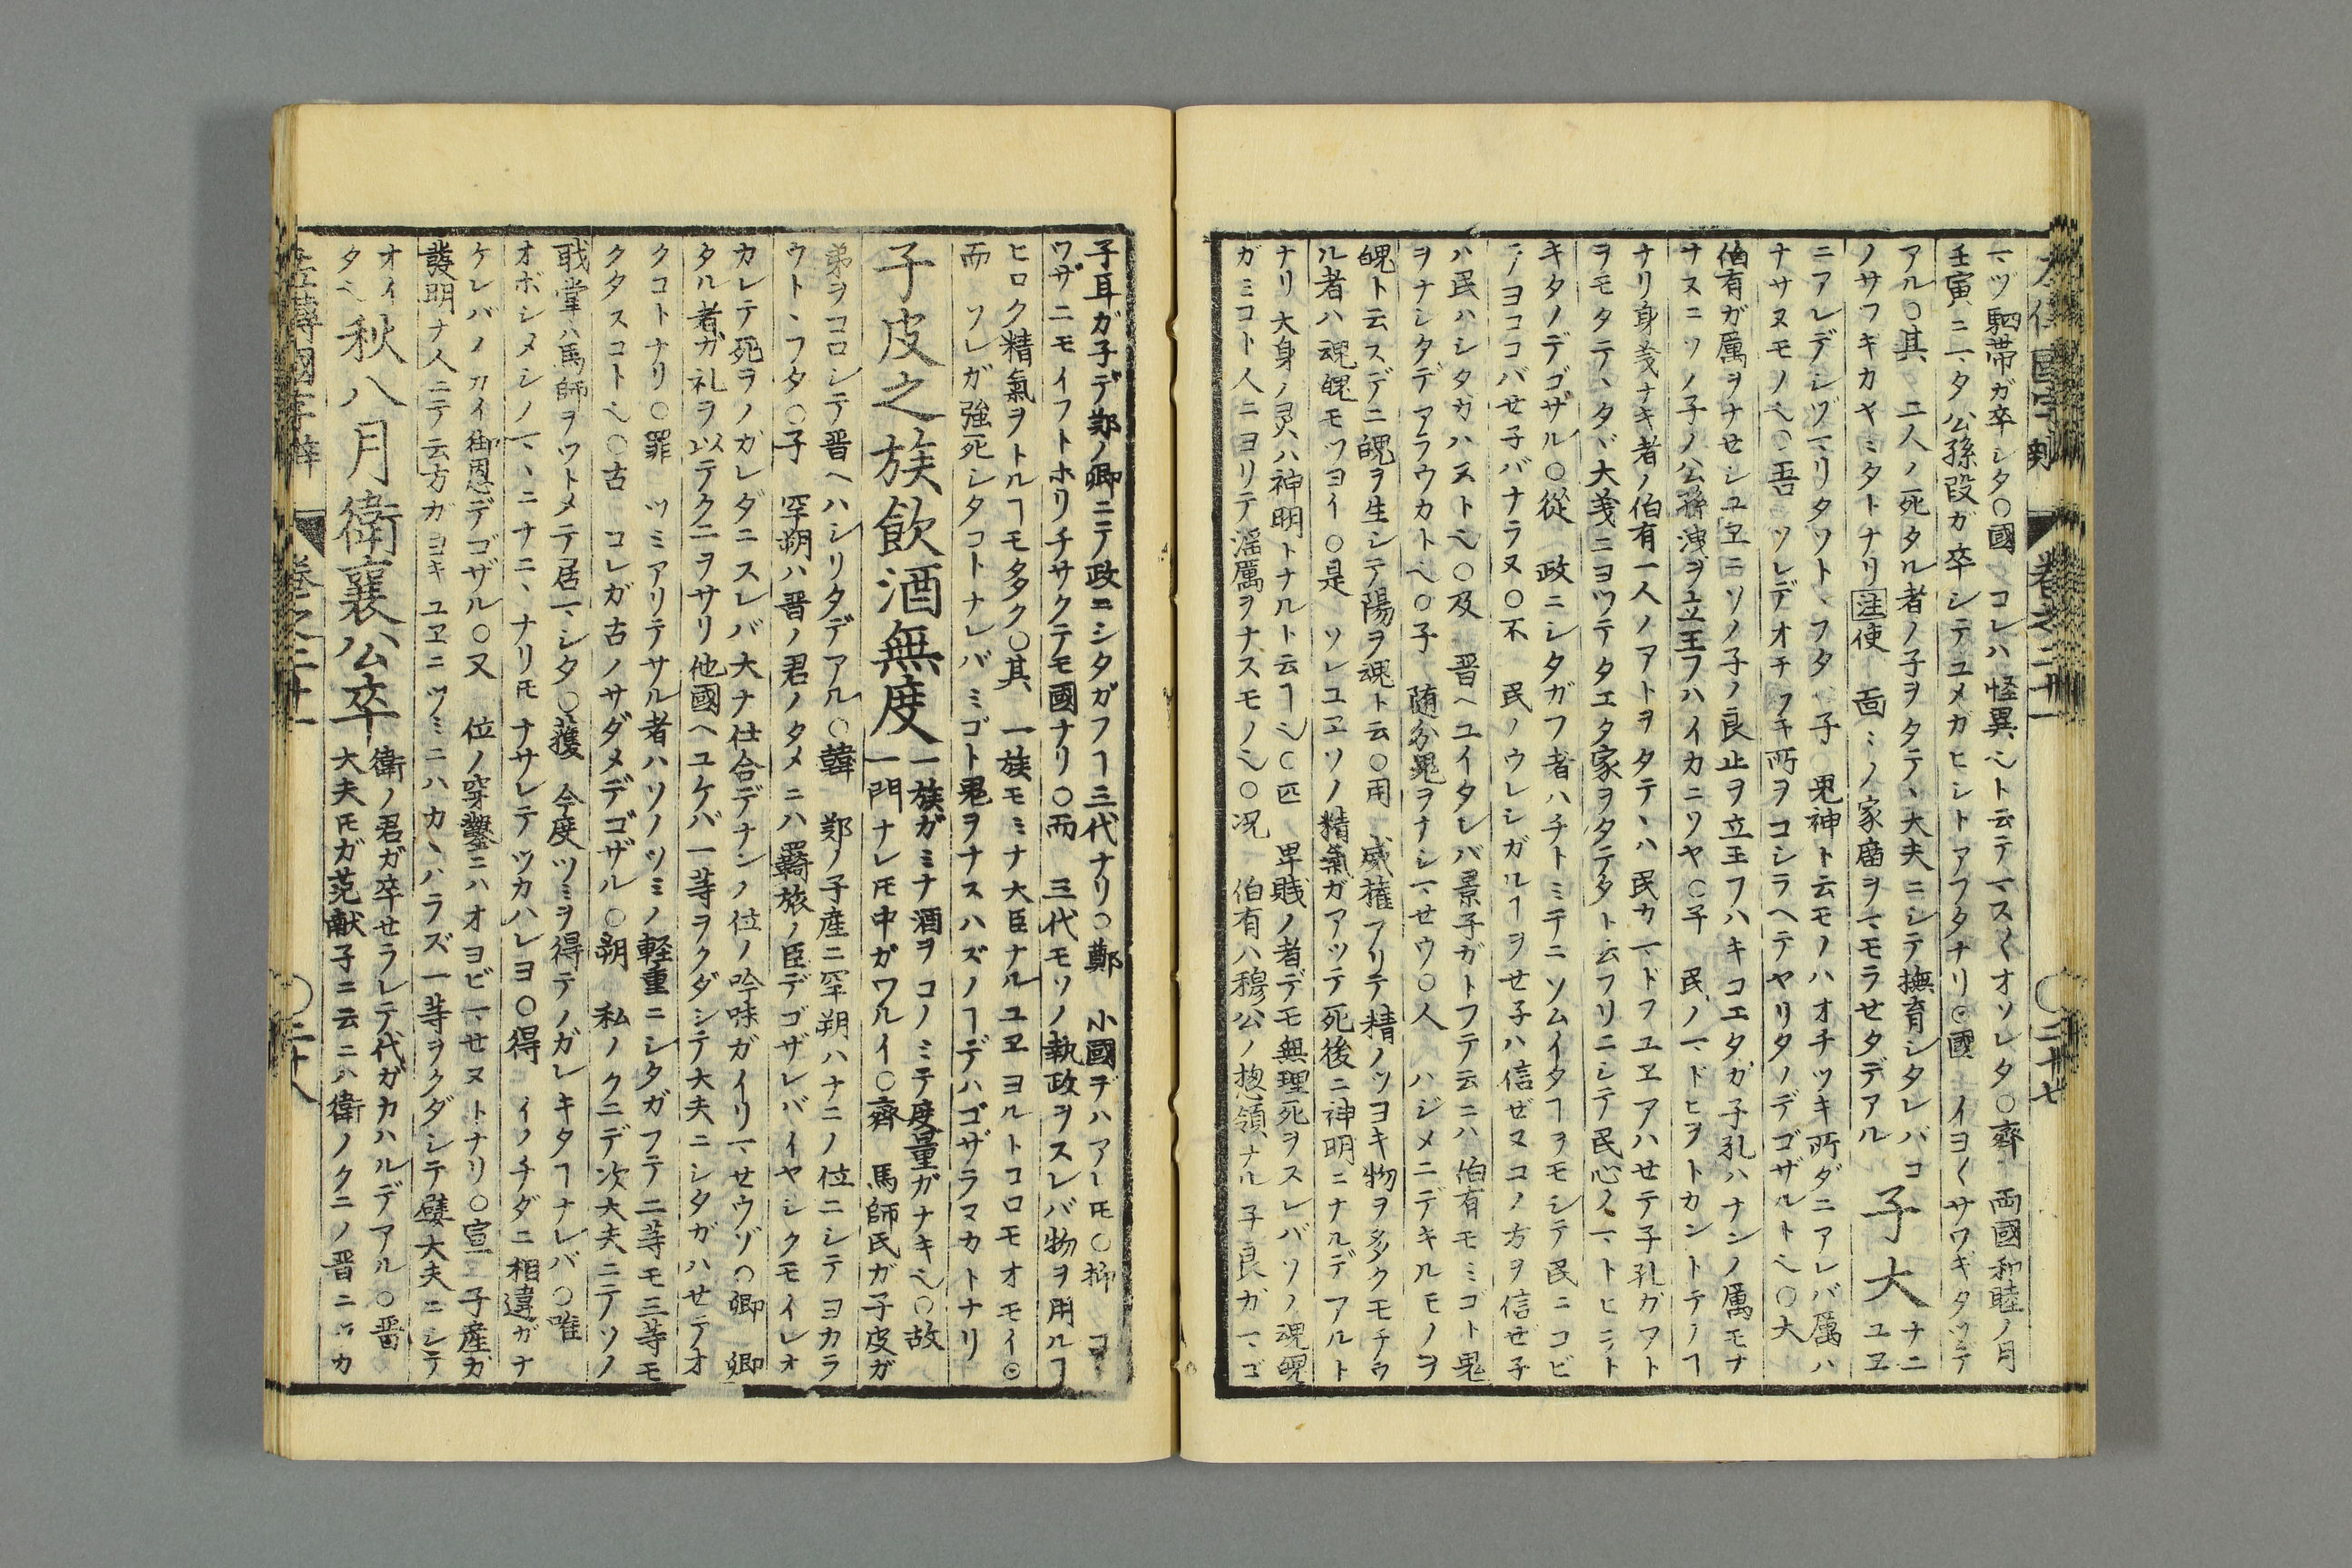 卷之二十一
〇二十七
マヅ駟帯ガ卒シタ〇國 コレハ怪異ヘト云テマス〱オソレタ〇齊 両國和睦ノ月
壬寅ニマタ公孫段ガ卒シテユメガヒシトアフタナリ〇國 イヨ〱サワギタツテ
アル〇其 二人ノ死タル者ノ子ヲタテヽ大夫ニシテ撫育シタレバコ
ノサワギガヤミタトナリ注使 面〻ノ家庿ヲマモラセタデアル
子大
ナニ
ユヱ
ニアレデシヅマリタソトヽフタ 子 鬼神ト云モノハオチツキ所ダニアレバ厲ハ
ナサヌモノヘ〇吾 ソレデオチツキ所ヲコシラヘテヤリタノデゴザルトヘ〇大
伯有ガ厲ヲナセシユヱニソノ子ノ良止ヲ立玉フハキコエタガ子孔ハナンノ厲モナ
ナスニソノ子ノ公孫洩ヲ立玉フハイカニソヤ〇子 民ノマドヒヲトカントテノヿ
ナリ身義ナキ者ノ伯有一人ノアトヲタテヽハ民カマドフユヱアハセテ子孔ガアト
ヲモタテヽタヾ大義ニヨツテタエタ家ヲタテタト云フリニシテ民心ノマトヒニト
キタノデゴザル〇從 政ニシタガフ者ハチトミチニソムイタヿヲモシテ民ニコビ
テノヨココバせ子バナラヌ〇不 民ノウレシガルヿヲせ子ハ信ぜヌコノ方ヲ信ぜ子
ハ民ハシタガハヌトヘ〇及 晋ヘユイタレバ景子ガトフテ云ニハ伯有モミゴト鬼
ヲナシタデアラウカトヘ〇子 随分鬼ヲナシマせウ〇人 ハジメニデキルモノヲ
魄ト云スデニ魄ヲ生シテ陽ヲ魂ト云〇用 威權アリテ精ノツヨキ物ヲ多クモチウ
ル者ハ魂魄モツヨイ〇是 ソレユヱソノ精氣ガアツテ死後ニ神明ニナルデアルト
ナリ大身ノ灵ハ神明トナルト云ヿヘ〇匹 卑賎ノ者デモ無理死ヲスレバソノ魂魄
ガミコト人ニヨリテ淫厲ヲナスモノヘ〇况 伯有ハ穆公ノ揔領ナル子良ガマゴ
子耳ガ子デ鄭ノ卿ニテ政ニシタガフヿ三代ナリ〇鄭 小國デハアレ𪜈〇抑 コヽ
ワザニモイフトホリチサクテモ國ナリ〇而 三代モソノ執政ヲスレバ物ヲ用ルヿ
ヒロク精氣ヲトルヿモ多ク〇其 一族モミナ大臣ナルユヱヨルトコロモオモイ〇
而 ソレガ強死シタコトナレバミゴト鬼ヲナスハズノヿデハゴザラヌカトナリ
子皮之族飲酒無度
一族ガミナ酒ヲコノミテ度量ガナキヘ〇故
一門ナレ𪜈中ガワルイ〇齊 馬師氏ガ子皮ガ
弟ヲコロシテ晋ヘハシリタデアル〇韓 鄭ノ子産ニ罕朔ハナニノ位ニシテヨカラ
ウトヽフタ〇子 罕朔ハ晋ノ君ノタメニハ羇旅ノ臣デゴザレバイヤシクモイレオ
カレテ死ヲノガレダニスレバ大ナ仕合デナンノ位ノ吟味ガイリマせウゾ〇卿 卿
タル者ガ礼ヲ以テクニヲサリ他國ヘユケバ一等ヲクダシテ大夫ニシタガハせテオ
クコトナリ〇罪 ツミアリテサル者ハソノツミノ軽重ニシタガフテ二等モ三等モ
クタスコトヘ〇古 コレガ古ノサダメデゴザル〇朔 私ノクニデ次大夫ニテソノ
戢掌ハ馬師ヲツトメテ居マシタ〇獲 今度ツミヲ得テノガレキタヿナレバ〇唯
オボシメシノマヽニナニヽナリ𪜈ナサレテツカハレヨ〇得 イノチダニ相違ガナ
ケレバノガイ御恩デゴザル〇又 位ノ穿鑿ニハオヨビマせヌトナリ〇宣 子産ガ
發明ナ人ニテ云方ガヨキユヱニツミニハカヽハラズ一等ヲクダシテ嬖大夫ニシテ
オイ
タヘ
秋八月衛襄公卒
衛ノ君ガ卒せラレテ代ガカハルデアル〇晋
大夫𪜈ガ范献子ニ云ニハ衛ノクニノ晋ニツカ
左傳國字辯
卷之二十一
〇二十八